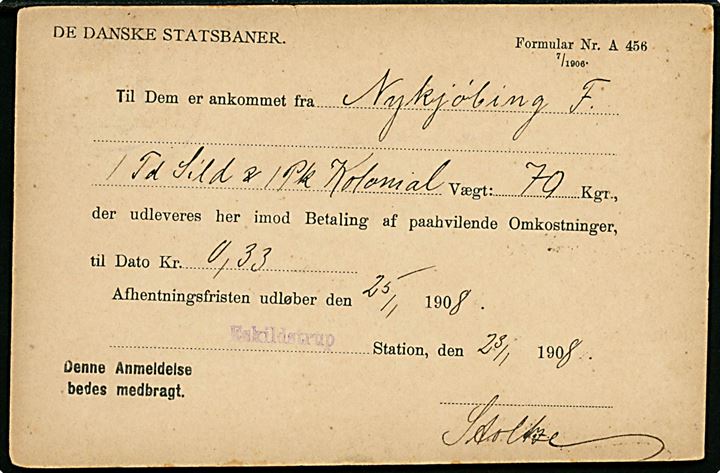 DE DANSKE STATSBANER.
Formular Nr. A 456
7/1906.
Til Dem er ankommet fra Nykjöbing F.
1 Td Sild & 1 Pk Kolonial Vægt: 79 Kgr.,
der udleveres her imod Betaling af paahvilende Omkostninger,
til Dato Kr. 0,33
Afhentningsfristen udløber den 25/1 1908.
Eskildstrup Station, den 23/1 1908.
Denne Anmeldelse
bedes medbragt.